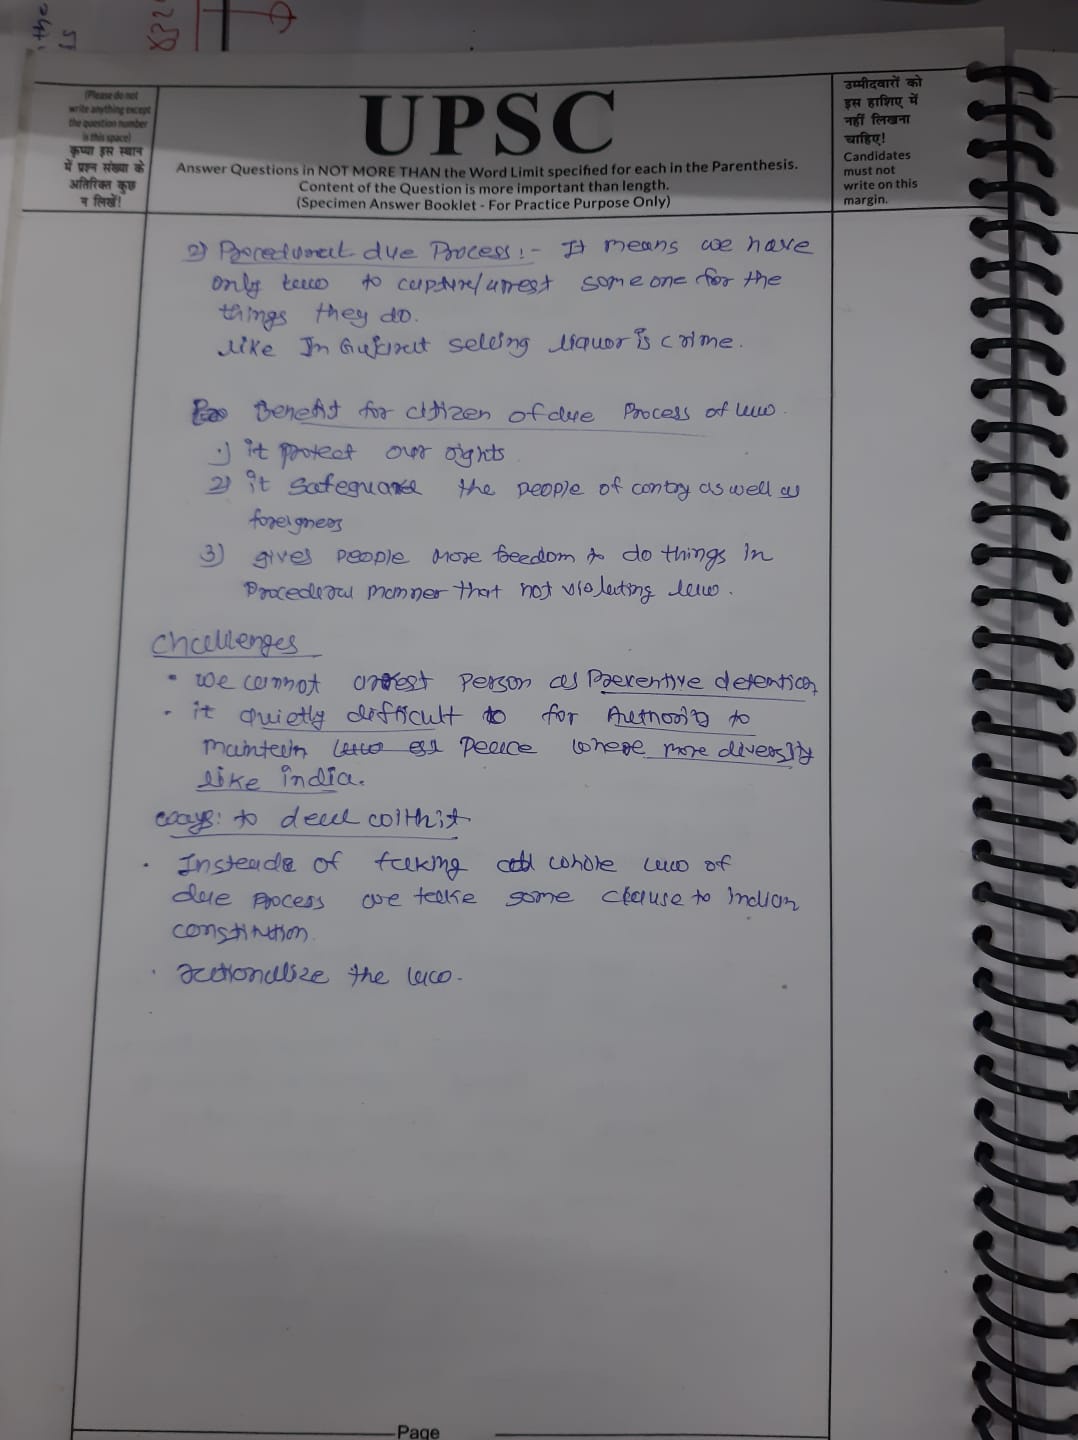 (Please do not
write anything except
the question number
in this space)
कृप्या इस स्थान
में प्रश्न संख्या के
अतिरिक्त कुछ
न लिखें!
UPSC
Answer Questions in NOT MORE THAN the Word Limit specified for each in the Parenthesis.
Content of the Question is more important than length.
(Specimen Answer Booklet - For Practice Purpose Only)
उम्मीदवारों को
इस हाशिए में
नहीं लिखना
चाहिए!
Candidates
must not
write on this
margin.
2) Procedural due Process:- It means we have
only law to capture/arrest someone for the
things they do.
like In Gujarat selling liquor is crime.
Benefit for citizen of due Process of law.
1) it protect our rights
2) it safeguard the people of contry as well as
foreigners
3) gives people more freedom to do things in
Procedural manner that not violating law.
Challenges
• we cannot arrest person as Preventive detention
• it quietly difficult to for Authority to
maintain law Peace where more diversity
like india.
ways: to deal withit
• Insteade of taking whole law of
due process we take some clause to indian
constitution.
• rationalize the law.
Page